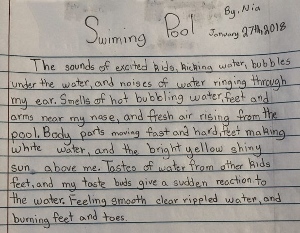 By, Nia
Swiming Pool
January 27th, 2018
The sounds of excited kids, kicking water, bubbles
under the water, and noises of water ringing through
my ear. Smells of hot bubbling water, feet and
arms near my nose, and fresh air rising from the
pool. Body parts moving fast and hard, feet making
white water, and the bright yellow shiny
sun above me. Tastes of water from other kids
feet, and my taste buds give a sudden reaction to
the water. Feeling smooth clear rippled water, and
burning feet and toes.